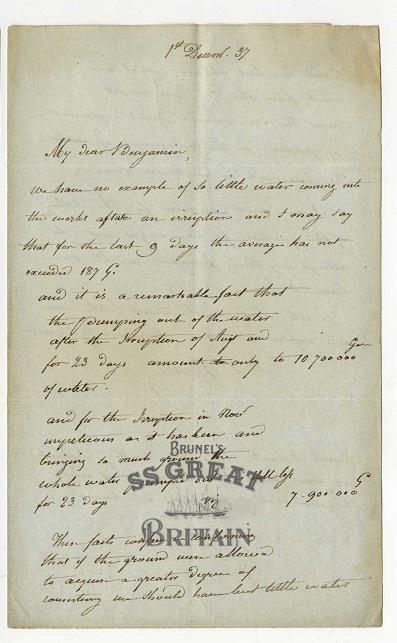 1st Decemr. 37
My dear Benjamin,
we have no example of so little water coming into
the works after an irruption and I may say
that for the last 9 days the average has not
exceeded 187 G.
and it is a remarkable fact that
the pumping out of the water
after the Irruption of Augt and
for 23 days amount to only to 10 700 000 Gall
of water.
and for the Irruption in Novr
mysterious as it has been and
bringing so much ground the
whole water pumped out still less
for 23 days 7.900 000 G
These facts
that if the ground were allowed
to acquire a greater degree of
we should have but little water
BRUNEL'S
SS GREAT
BRITAIN